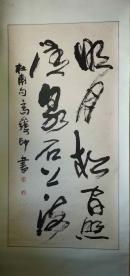 明月松間照
清泉石上流
句高印書